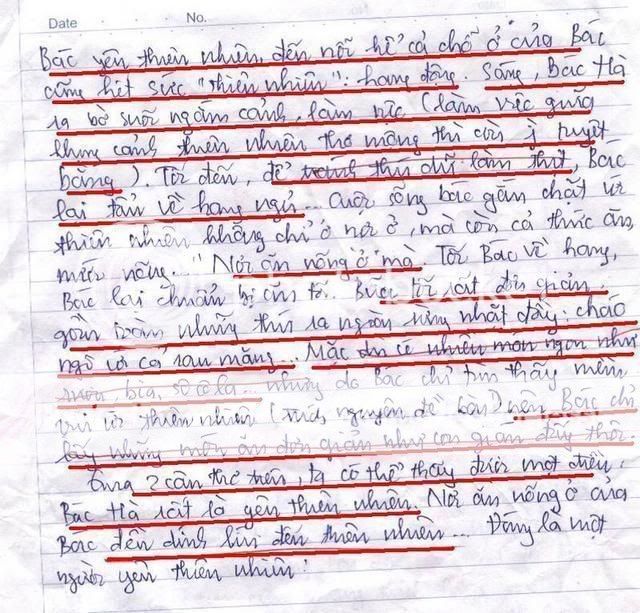 Date No.
Bác yên thiên nhiên, đến nỗi hể cả chổ ở của Bác
cũng hết sức "thiên nhiên": hang động. Sáng, Bác Hà
ra bờ suối ngắm cảnh, làm việc (làm việc giữa
khung cảnh thiên nhiên thơ mông thì còn j tuyệt
bằng). Tối đến, để tránh thú dữ làm thịt, Bác
lại tản về hang ngủ... Cuộc sống bác gắn chặt với
thiên nhiên không chỉ ở nơi ở, mà còn cả thức ăn,
nước nống. "Nơi ăn nống ở mà. Tối Bác về hang,
Bác lại chuẩn bị ăn tối. Bữa tối rất đơn giản,
gồm toàn những thứ ra ngoài rừng nhặt đầy: cháo
ngô với cả rau măng... Mặc dù có nhiều món ngon như
rượu, bia, sô cô la... nhưng do Bác chỉ tìm thấy niềm
vui với thiên nhiên (trích nguyên đề bài) nên Bác chỉ
lấy những món ăn đơn giản như con gián đấy thôi.
Qua 2 cân thơ trên, ta có thể thấy được một điều:
Bác Hà rất là yên thiên nhiên. Nơi ăn nống ở của
Bác đền dính líu đến thiên nhiên... Đúng là một
người yên thiên nhiên!